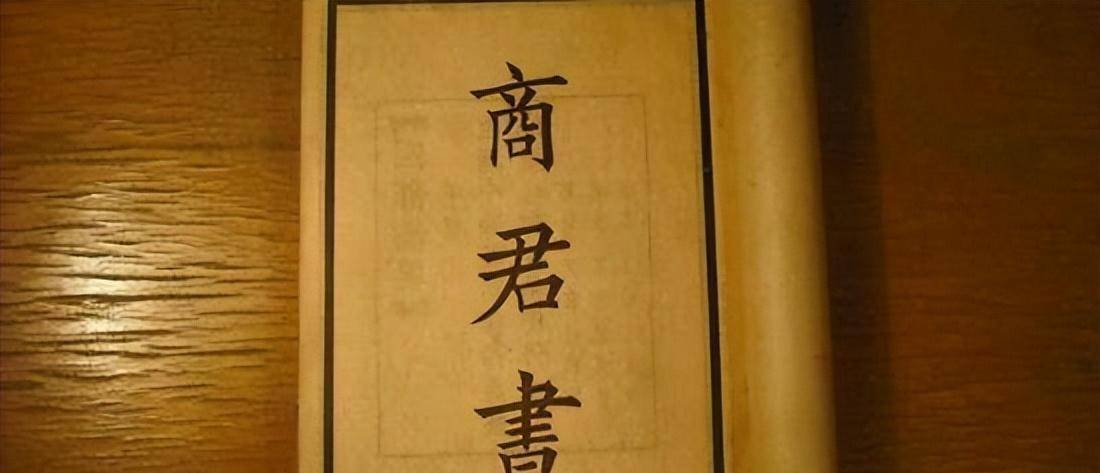 商君書